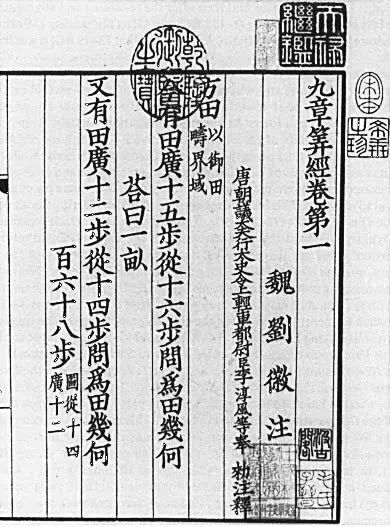 天祿
繼鑑
乾隆
御覽
之寶
宋本
希世
之珍
九章筭經卷第一
魏劉徽注
唐朝議大夫行太史令上輕車都尉臣李淳風等奉 勑注釋
方田 以御田
疇界域
今有田廣十五步從十六步問爲田幾何
荅曰一畝
又有田廣十二步從十四步問爲田幾何
百六十八步 圖從十四
廣十二